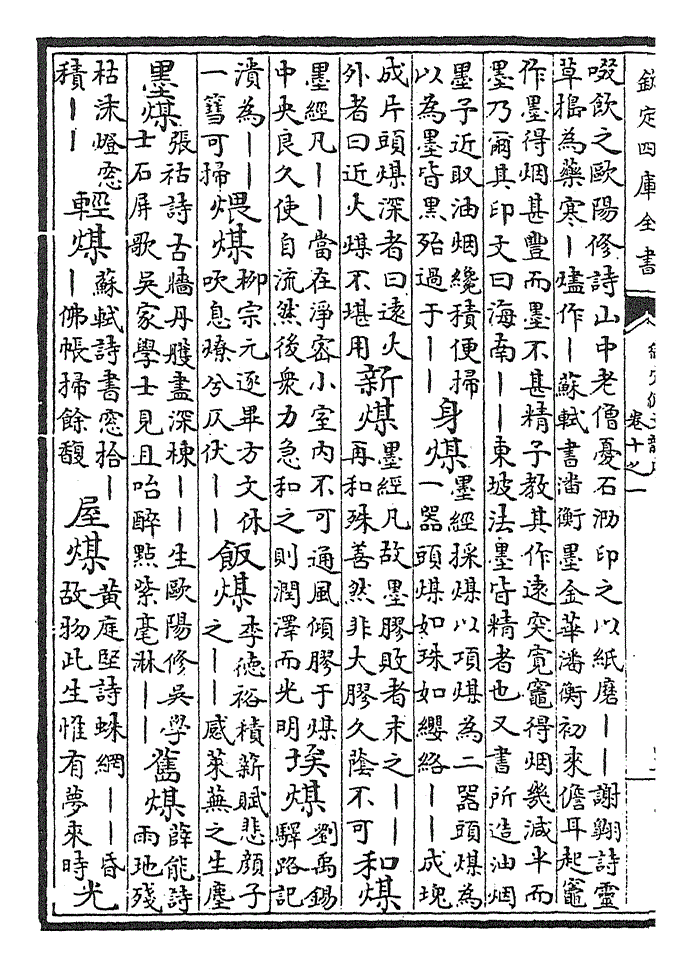 欽定四庫全書
卷十之一
啜飲之歐陽修詩山中老僧憂石泐印之以紙磨丨丨謝翱詩靈
草搗為藥寒丨燼作丨蘇軾書潘衡墨金華潘衡初來儋耳起竈
作墨得烟甚豐而墨不甚精予教其作遠突寛竈得烟幾減半而
墨乃爾其印文曰海南丨丨東坡法墨皆精者也又書所造油烟
墨予近取油烟纔積便掃
以為墨皆黒殆過于丨丨
身煤
墨經採煤以項煤為二器頭煤為
一器頭煤如珠如纓絡丨丨成塊
成片頭煤深者曰遠火
外者曰近火煤不堪用
新煤
墨經凡故墨膠敗者末之丨丨
再和殊善然非大膠久蔭不可
和煤
墨經凡丨丨當在淨密小室内不可通風傾膠于煤
中央良久使自流然後衆力急和之則潤澤而光明
埃煤
劉禹錫
驛路記
潰為丨丨
一篲可掃
煨煤
柳宗元逐畢方文休
吹息燎兮仄伏丨丨
飯煤
李德裕積薪賦悲顔子
之丨丨感萊蕪之生塵
墨煤
張祜詩古牆丹雘盡深棟丨丨生歐陽修吳學
士石屏歌吳家學士見且咍醉點紫毫淋丨丨
舊煤
薛能詩
雨地殘
枯沬燈窓
積丨丨
輕煤
蘇軾詩書窓拾丨
丨佛帳掃餘馥
屋煤
黄庭堅詩蛛網丨丨昏
故物此生惟有夢來時
光